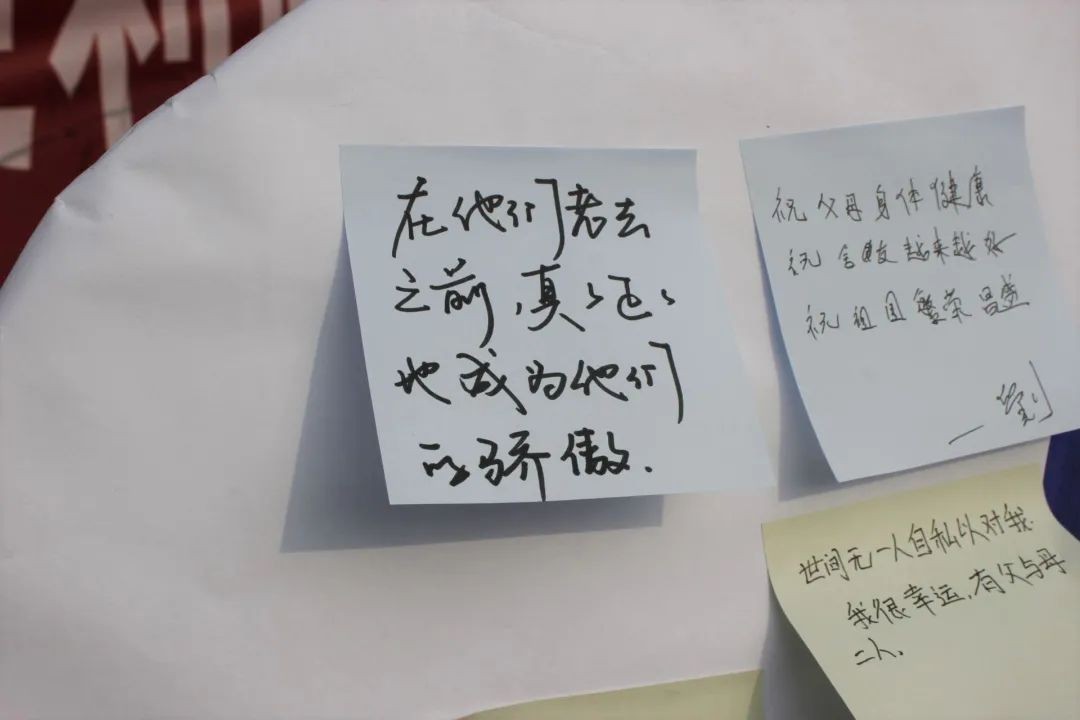 在他们老去
之前，真真正正
地成为他们
的骄傲.
祝父母身体健康
祝舍友越来越好
祝祖国繁荣昌盛
世间无一人自私以对我.
我很幸运,有父与母
二人.